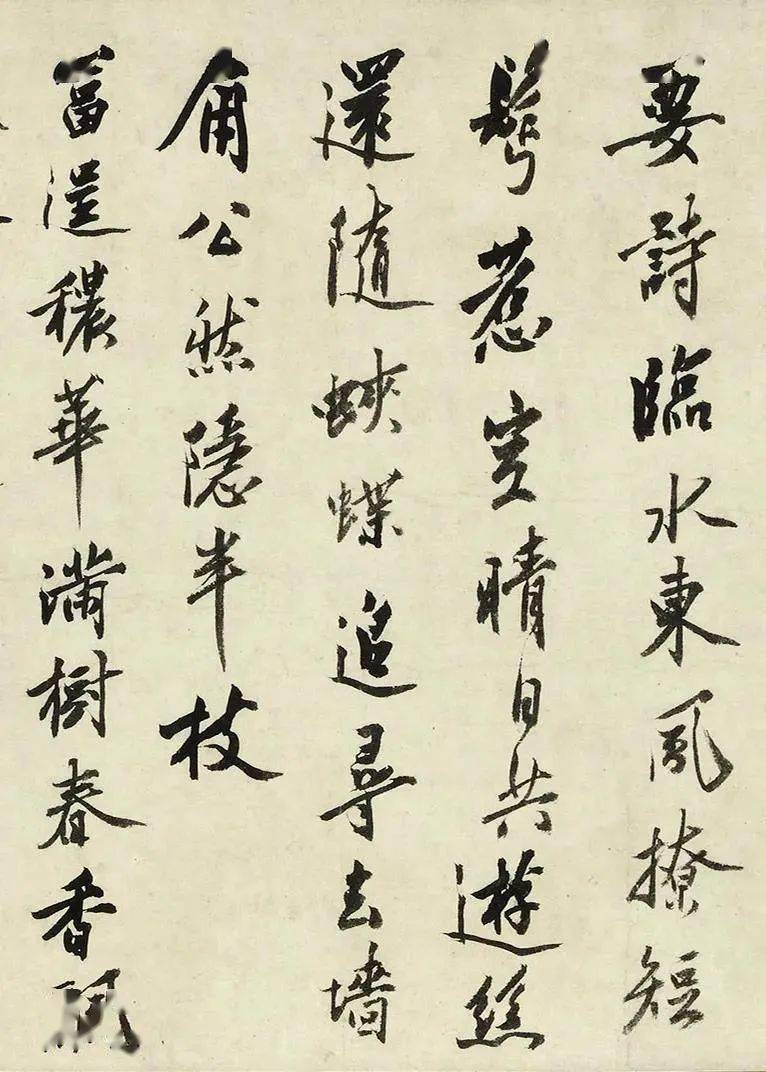 要詩臨水東風撩短
鬢惹空晴日共遊絲
還隨蛺蝶追尋去墻
角公然隱半枝
富逞穠華滿樹春香